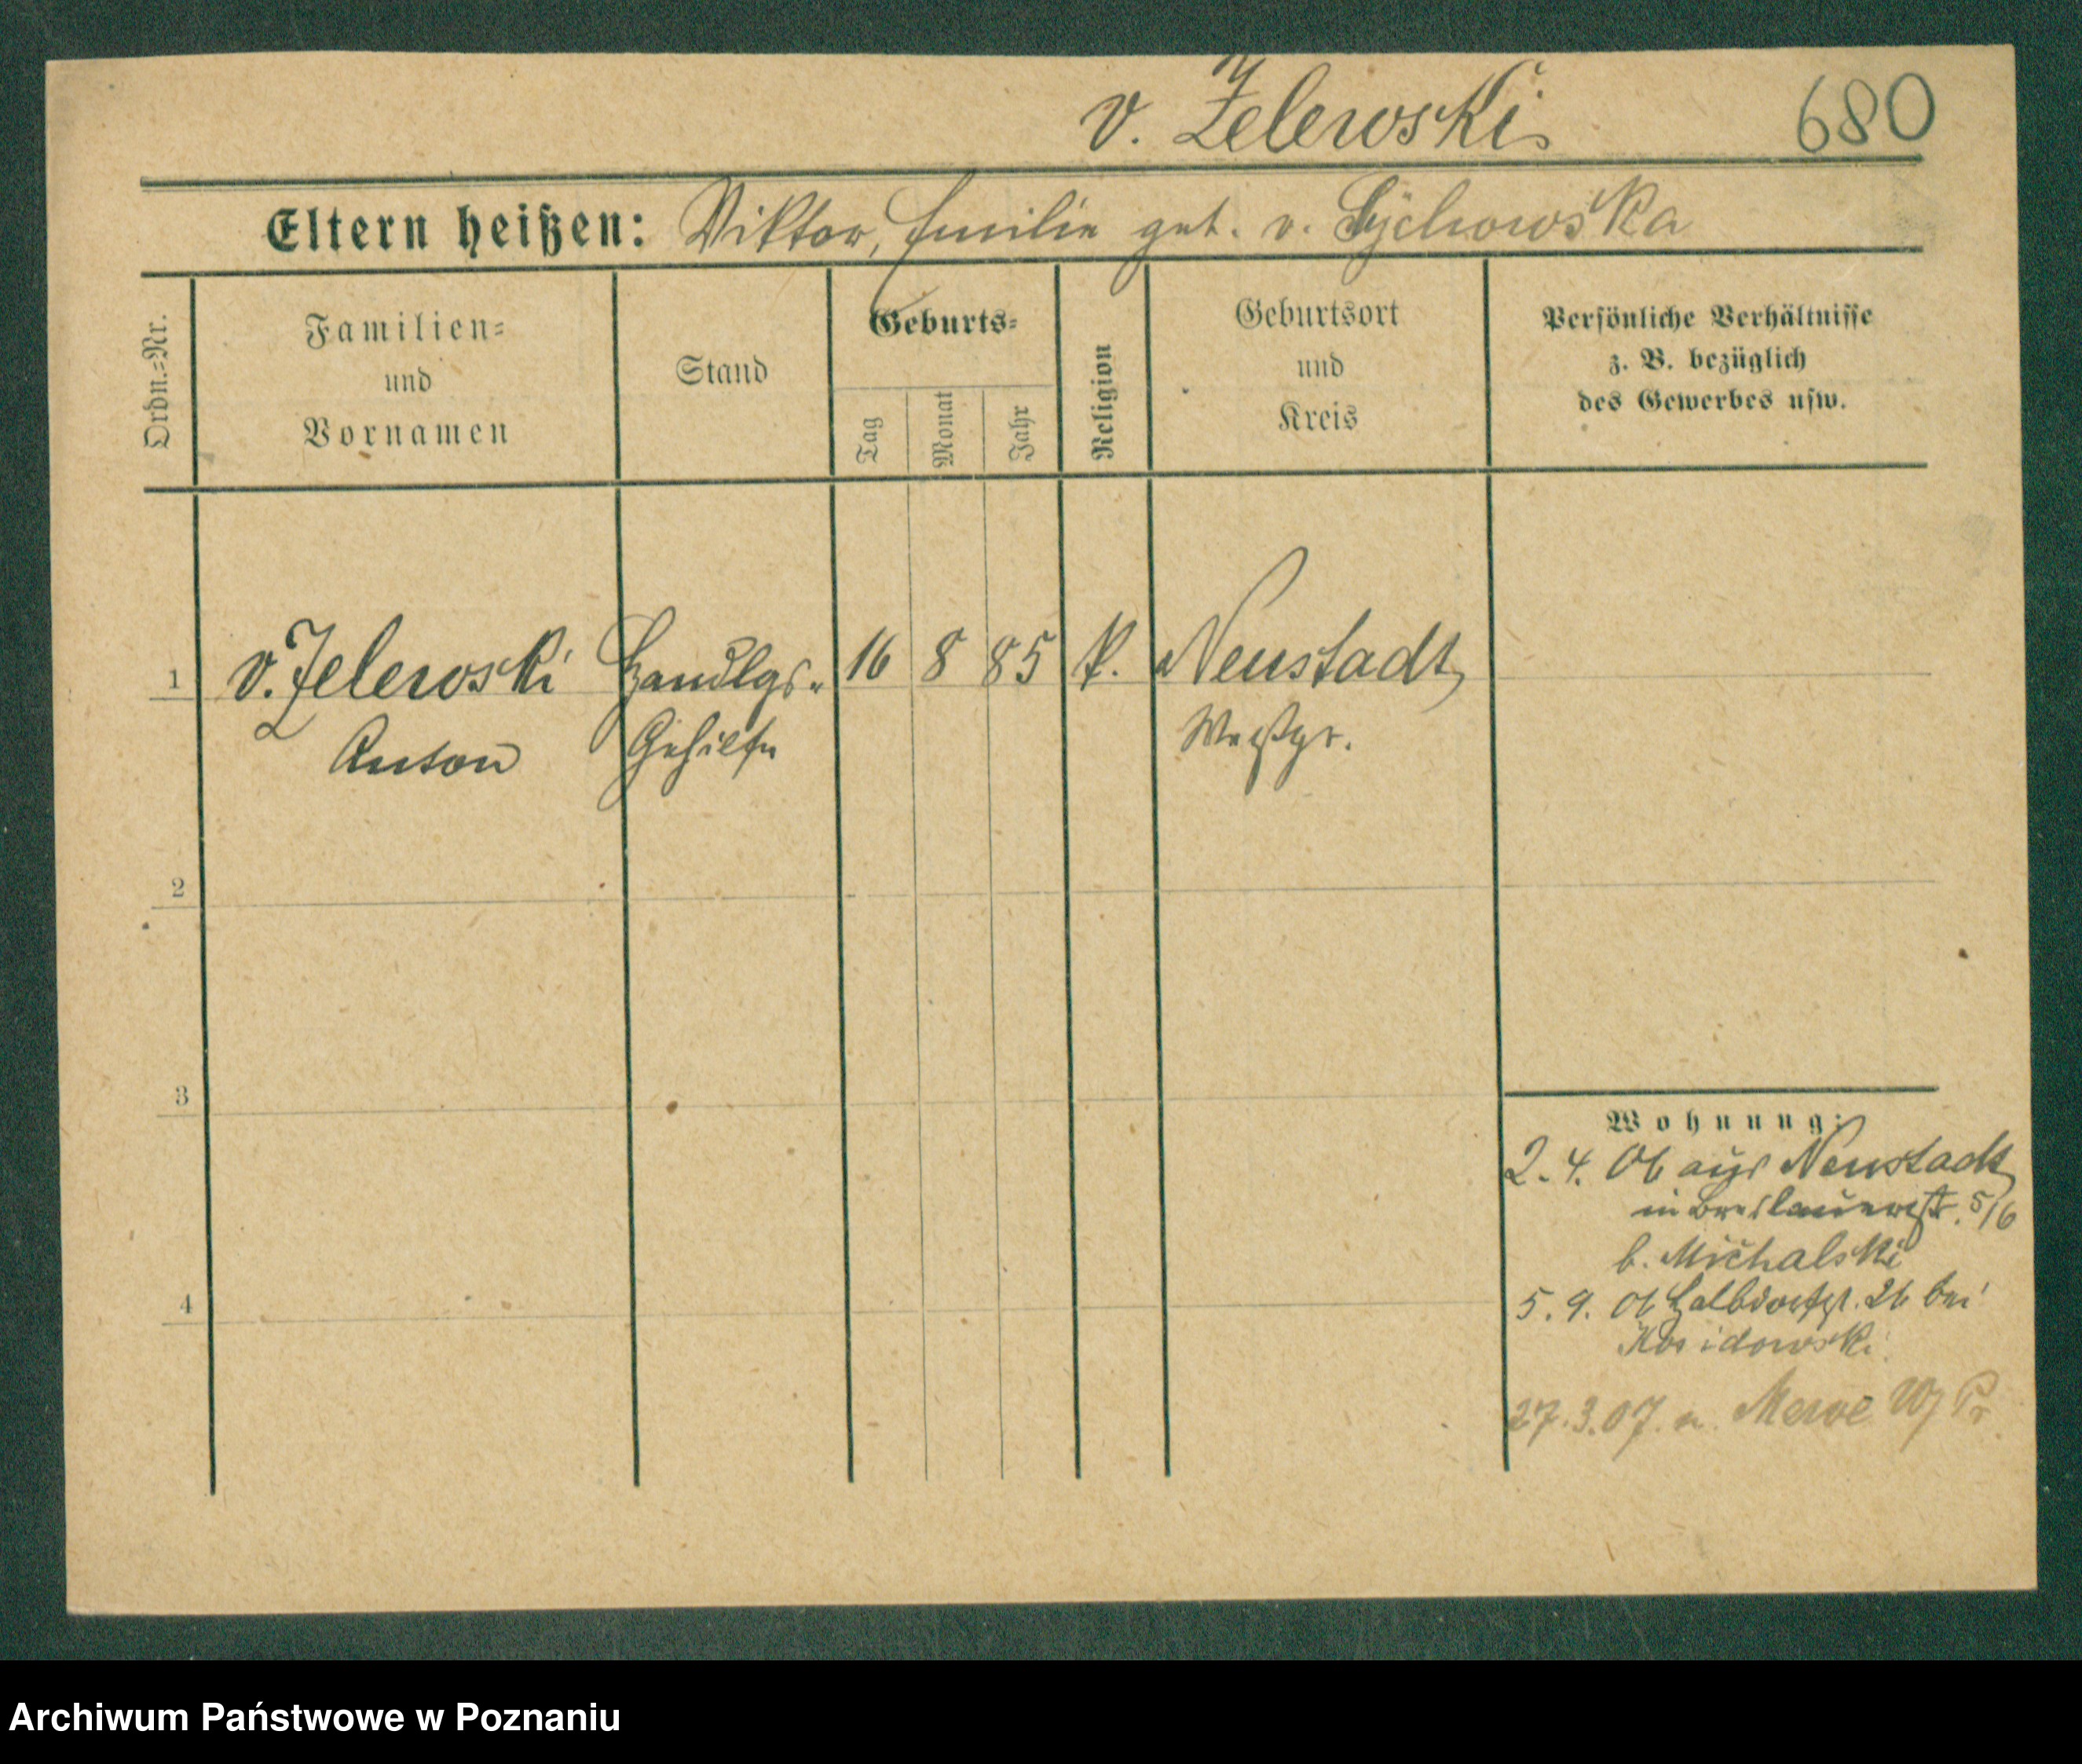 v. Zelewski
680
Eltern heißen: Viktor, Emilie geb. v. Lÿchowska
Ordn.=Nr.
Familien=
und
Vornamen
Stand
Geburts=
Tag
Monat
Jahr
Religion
Geburtsort
und
Kreis
Persönliche Verhältnisse
z. B. bezüglich
des Gewerbes usw.
1 v. Zelewski Handlgs.- 16 8 85 k. Neustadt
Anton Gehilfe Westpr.
2
3
4
Wohnung:
2.4. 06 aus Neustadt
in Breslauerstr. 5/6
b. Michalski
5.9. 06 Halbdorfstr. 26 bei
Kosidowski
27.3.07. n. Mewe W Pr
Archiwum Państwowe w Poznaniu